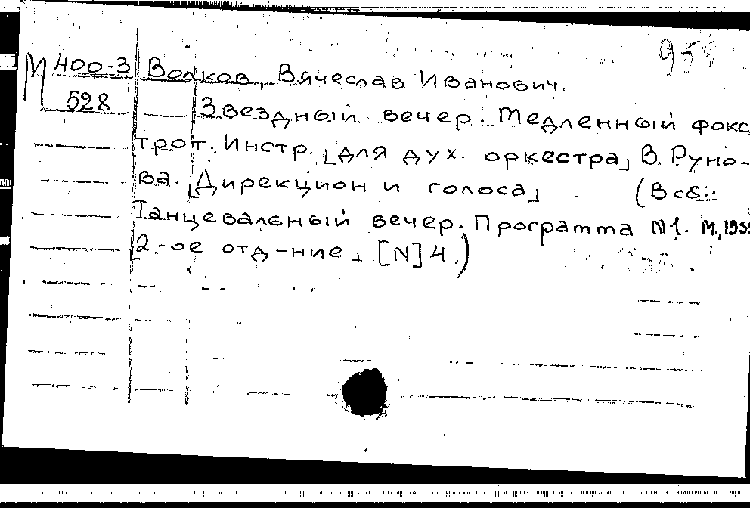 М 400-3 Волков, Вячеслав Иванович.
528 Звездный вечер. Медленный фокс
трот. Инстр. [для дух. оркестра] В. Руно-
ва. [Дирекцион и голоса] (В сб.:
Танцевальный вечер. Программа №1. М., 195
2.-ое отд-ние, [N] 4.)